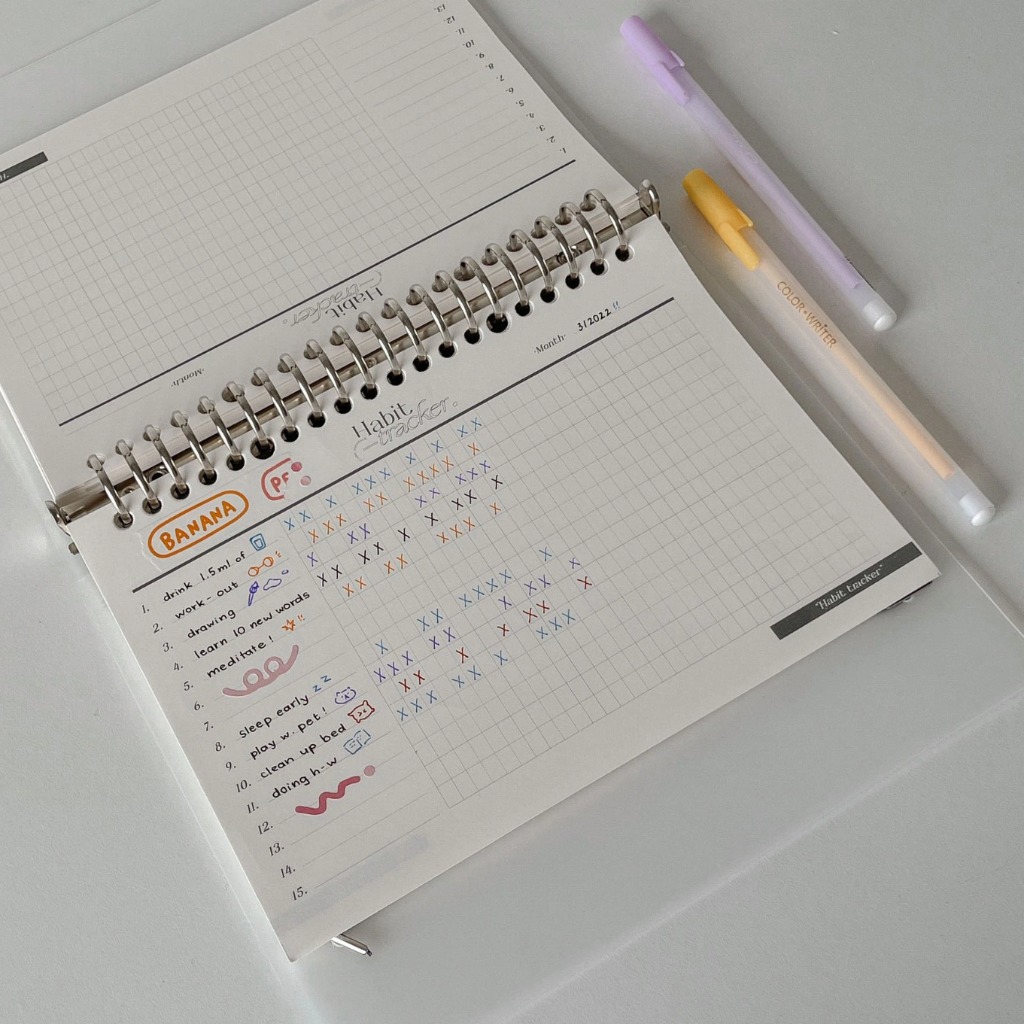 13.
12.
11.
10.
9.
8.
7.
6.
5.
4.
3.
2.
1.
Habit
tracker.
·Month·
COLOR·WRITER
·Month· 3/2022!!
Habit
tracker.
BANANA
PF
1. drink 1.5ml of
2. work-out
3. drawing
4. learn 10 new words
5. meditate!
6.
7.
8. sleep early z z
9. play w. pet!
10. clean up bed
11. doing h-w
12.
13.
14.
15.
"Habit tracker"